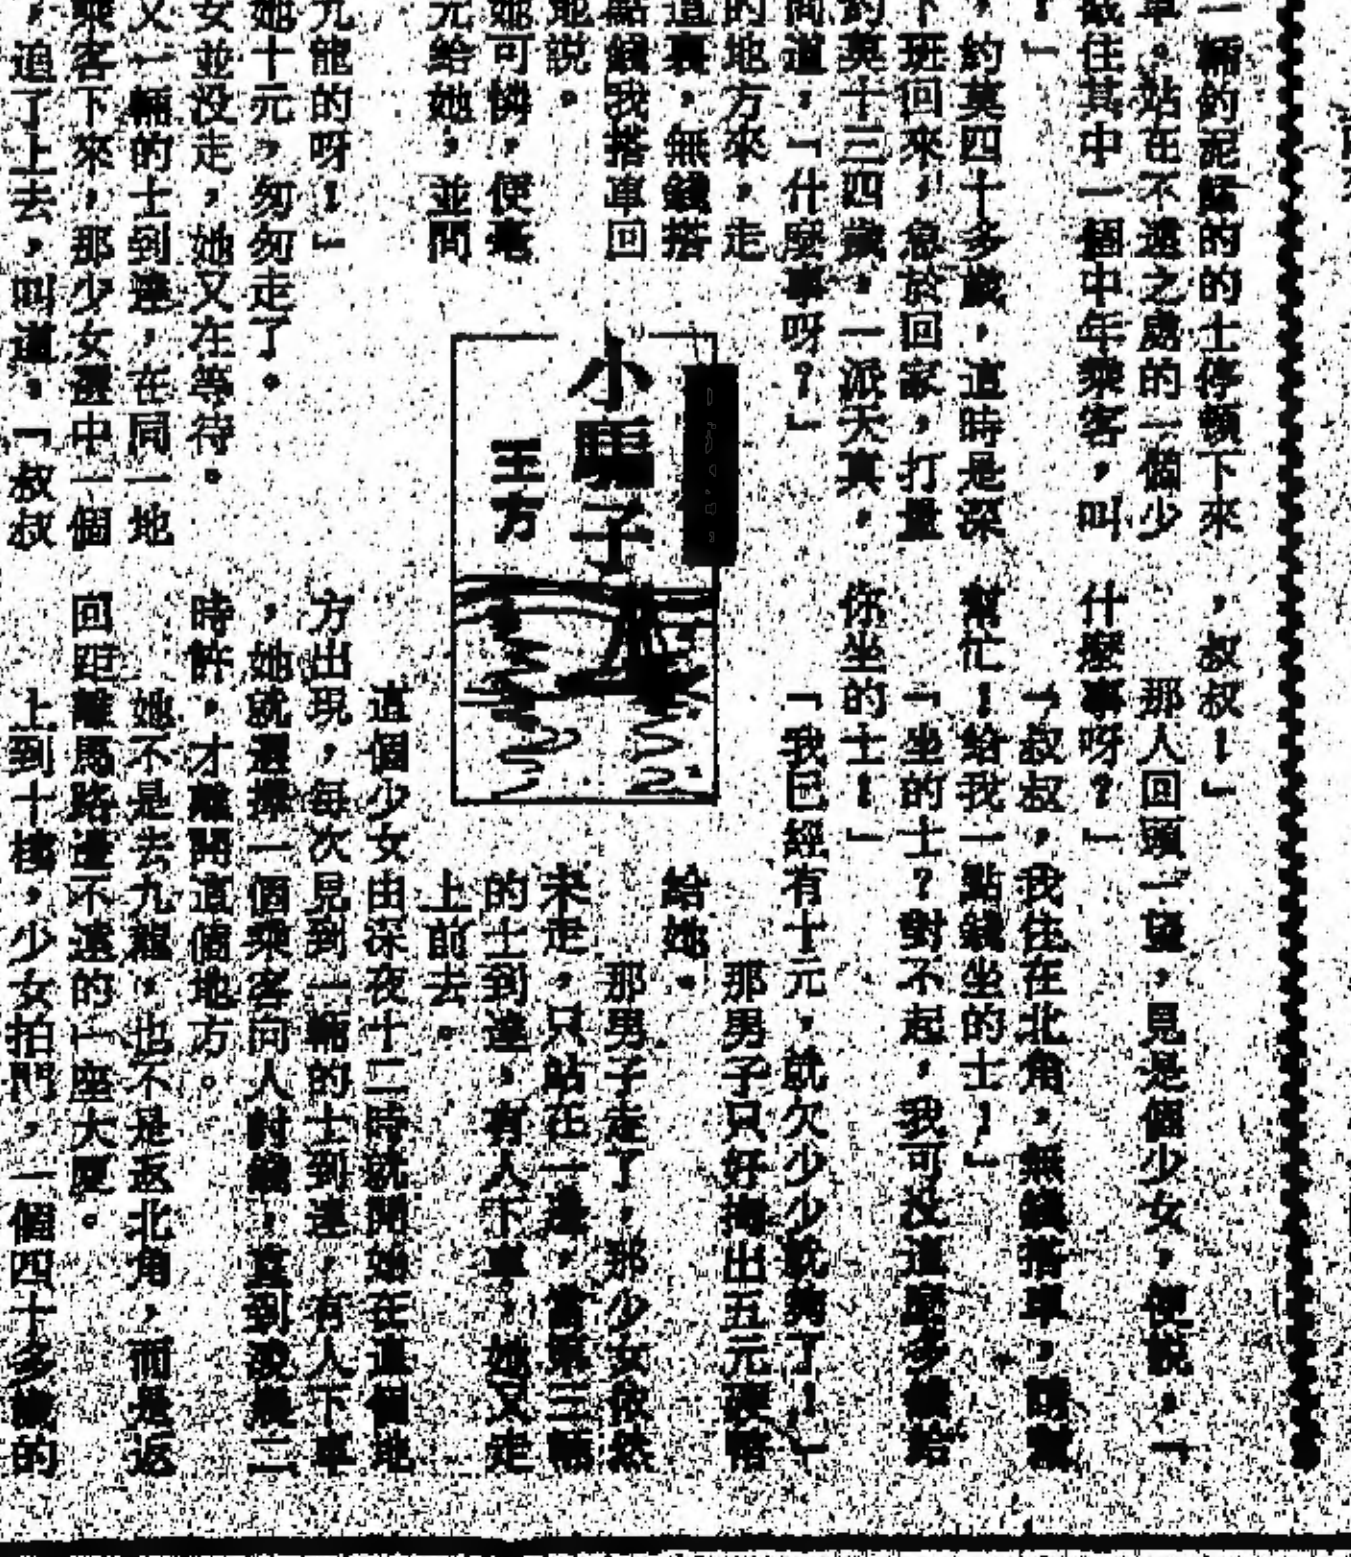 一輛釣泥鯭的的士停頓下來
車。站在不遠之處的一個少
截住其中一個中年乘客,叫
」
,約莫四十多歲,這時是深
下班回來,急於回家,打量
約莫十三四歲,一派天真,
問道:「什麼事呀?」
的地方來,走
這裏,無錢搭
點錢我搭車回
地説。
她可憐,便毫
元給她,並問
九龍的呀!」
她十元,匆匆走了。
女並没走,她又在等待。
又一輛的士到達,在同一地
乘客下來,那少女選中一個
,追了上去,叫道:「叔叔
小騙子
王方
,叔叔!」
那人回頭一望,見是個少女,便説:「
什麼事呀?」
「叔叔,我住在北角,無錢搭車,請
幫忙!給我一點錢坐的士!」
「坐的士?對不起,我可没這麼多錢給
你坐的士!」
「我已經有十元,就欠少少就夠了!」
那男子只好掏出五元硬幣
給她。
那男子走了,那少女依然
未走,只站在一邊,當第三輛
的士到達,有人下車,她又走
上前去。
這個少女由深夜十二時就開始在這個地
方出現,每次見到一輛的士到達,有人下車
,她就選擇一個乘客向人討錢,直到凌晨二
時許,才離開這個地方。
她不是去九龍,也不是返北角,而是返
回距離馬路邊不遠的一座大厦。
上到十樓,少女拍門,一個四十多歲的